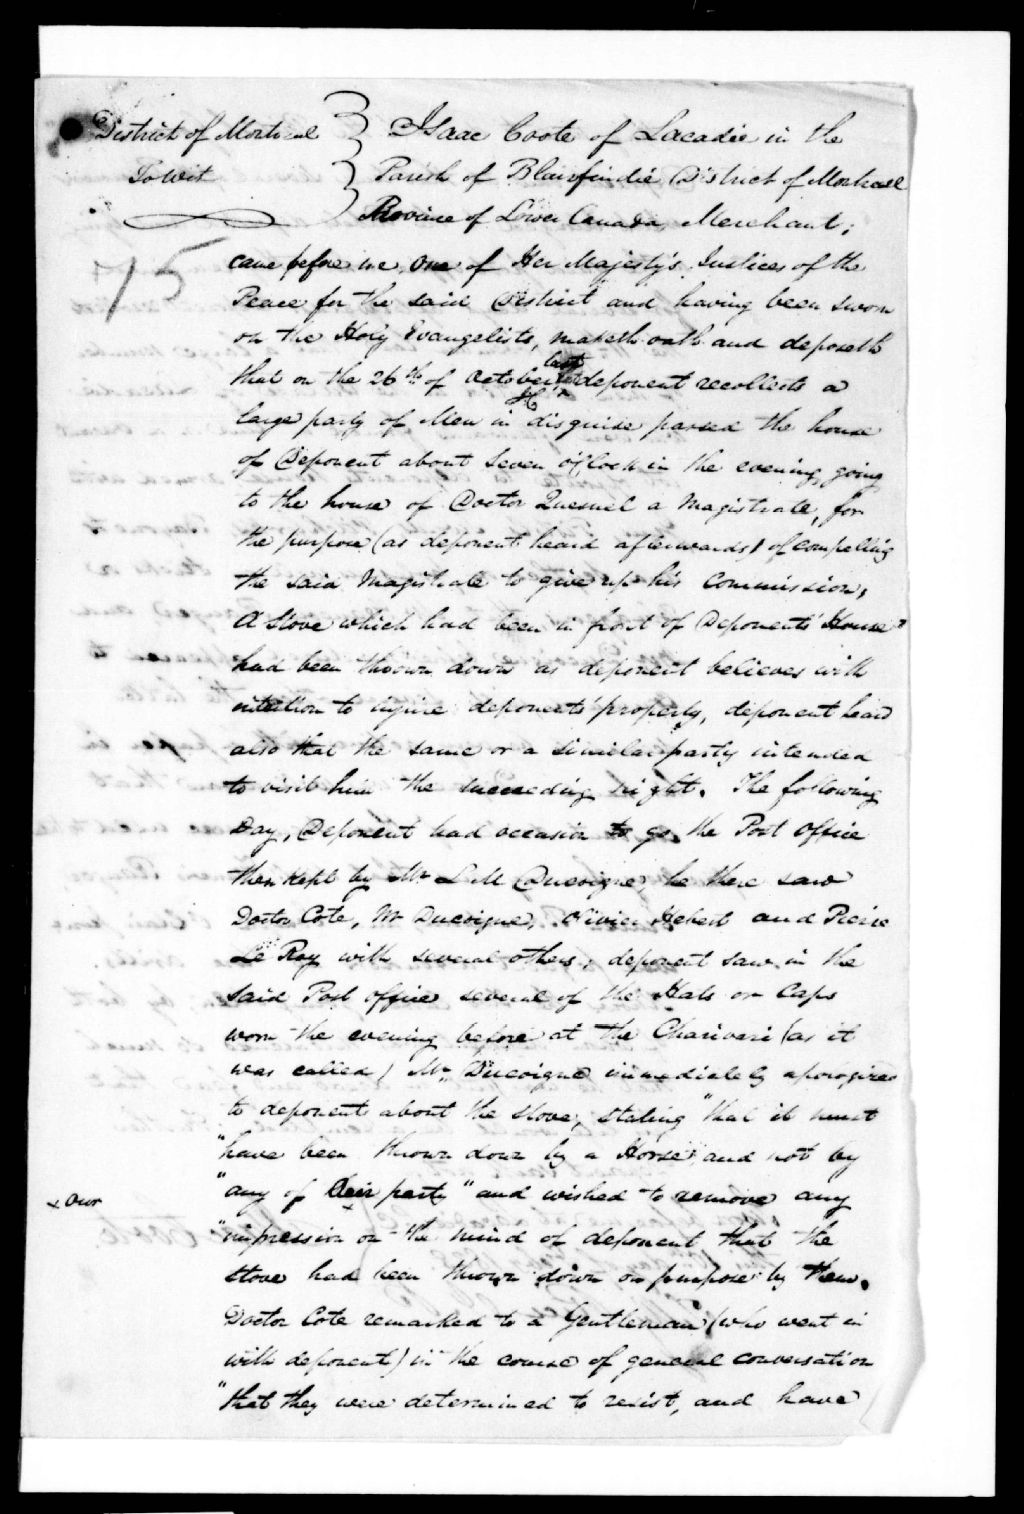 District of Montreal
To Wit
Isaac Coote of Lacadie in the
Parish of Blairfindie District of Montreal
Province of Lower Canada, Merchant;
75
came before me, One of Her Majesty's Justices of the
Peace for the said District and having been sworn
on the Holy Evangelists, maketh oath and deposeth
last
that on the 26th of October deponent recollects a
large party of Men in disguise passed the house
of Deponent about Seven o'Clock in the evening, going
to the house of Doctor Quesnel a Magistrate, for
the purpose (as deponent heard afterwards) of compelling
the said Magistrate to give up his Commission,
A Stove which had been in front of Deponents' House
had been thrown down as deponent believes with
intention to injure deponents' property, deponent heard
also that the same or a similar party intended
to visit him the succeeding night. The following
Day, Deponent had occasion to go the Post Office
then kept by Mr L M Ducoigne, he there saw
Doctor Cote, Mr Ducoigne, Olivier Hebert and Pierre
Le Roy with several others; deponent saw in the
said Post Office several of the Hats or Caps
worn the evening before at the Charivari (as it
was called) Mr Ducoigne immediately apologized
to deponent about the stove, stating "that it must
"have been thrown down by a Horse, and not by
"any of their party" and wished to remove any
x our
"impression on the mind of deponent that the
stove had been thrown down on purpose by them.
Doctor Cote remarked to a Gentleman (who went in
with deponent) in the course of general conversation
"that they were determined to resist, and have